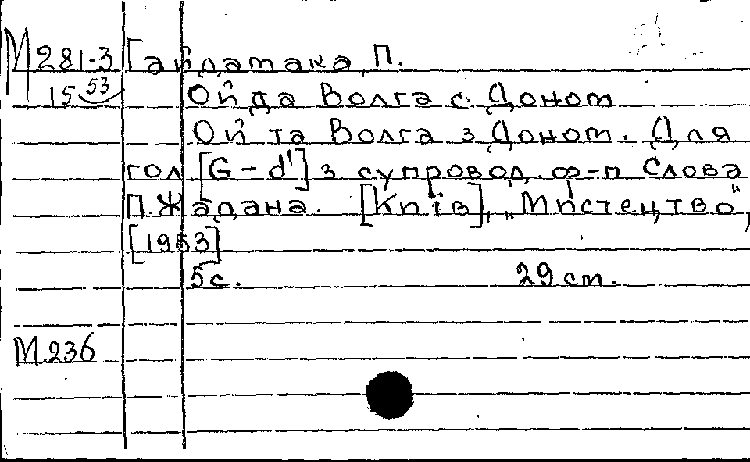 М 281-3 Гайдамака, П.
15 53 Ой да Волга с Доном
Ой та Волга з Доном. Для
гол. [G – d¹] з супровод. ф-п Слова
П. Жадана. [Київ], „Мистецтво",
[1953]
5 с. 29 cm.
М 236